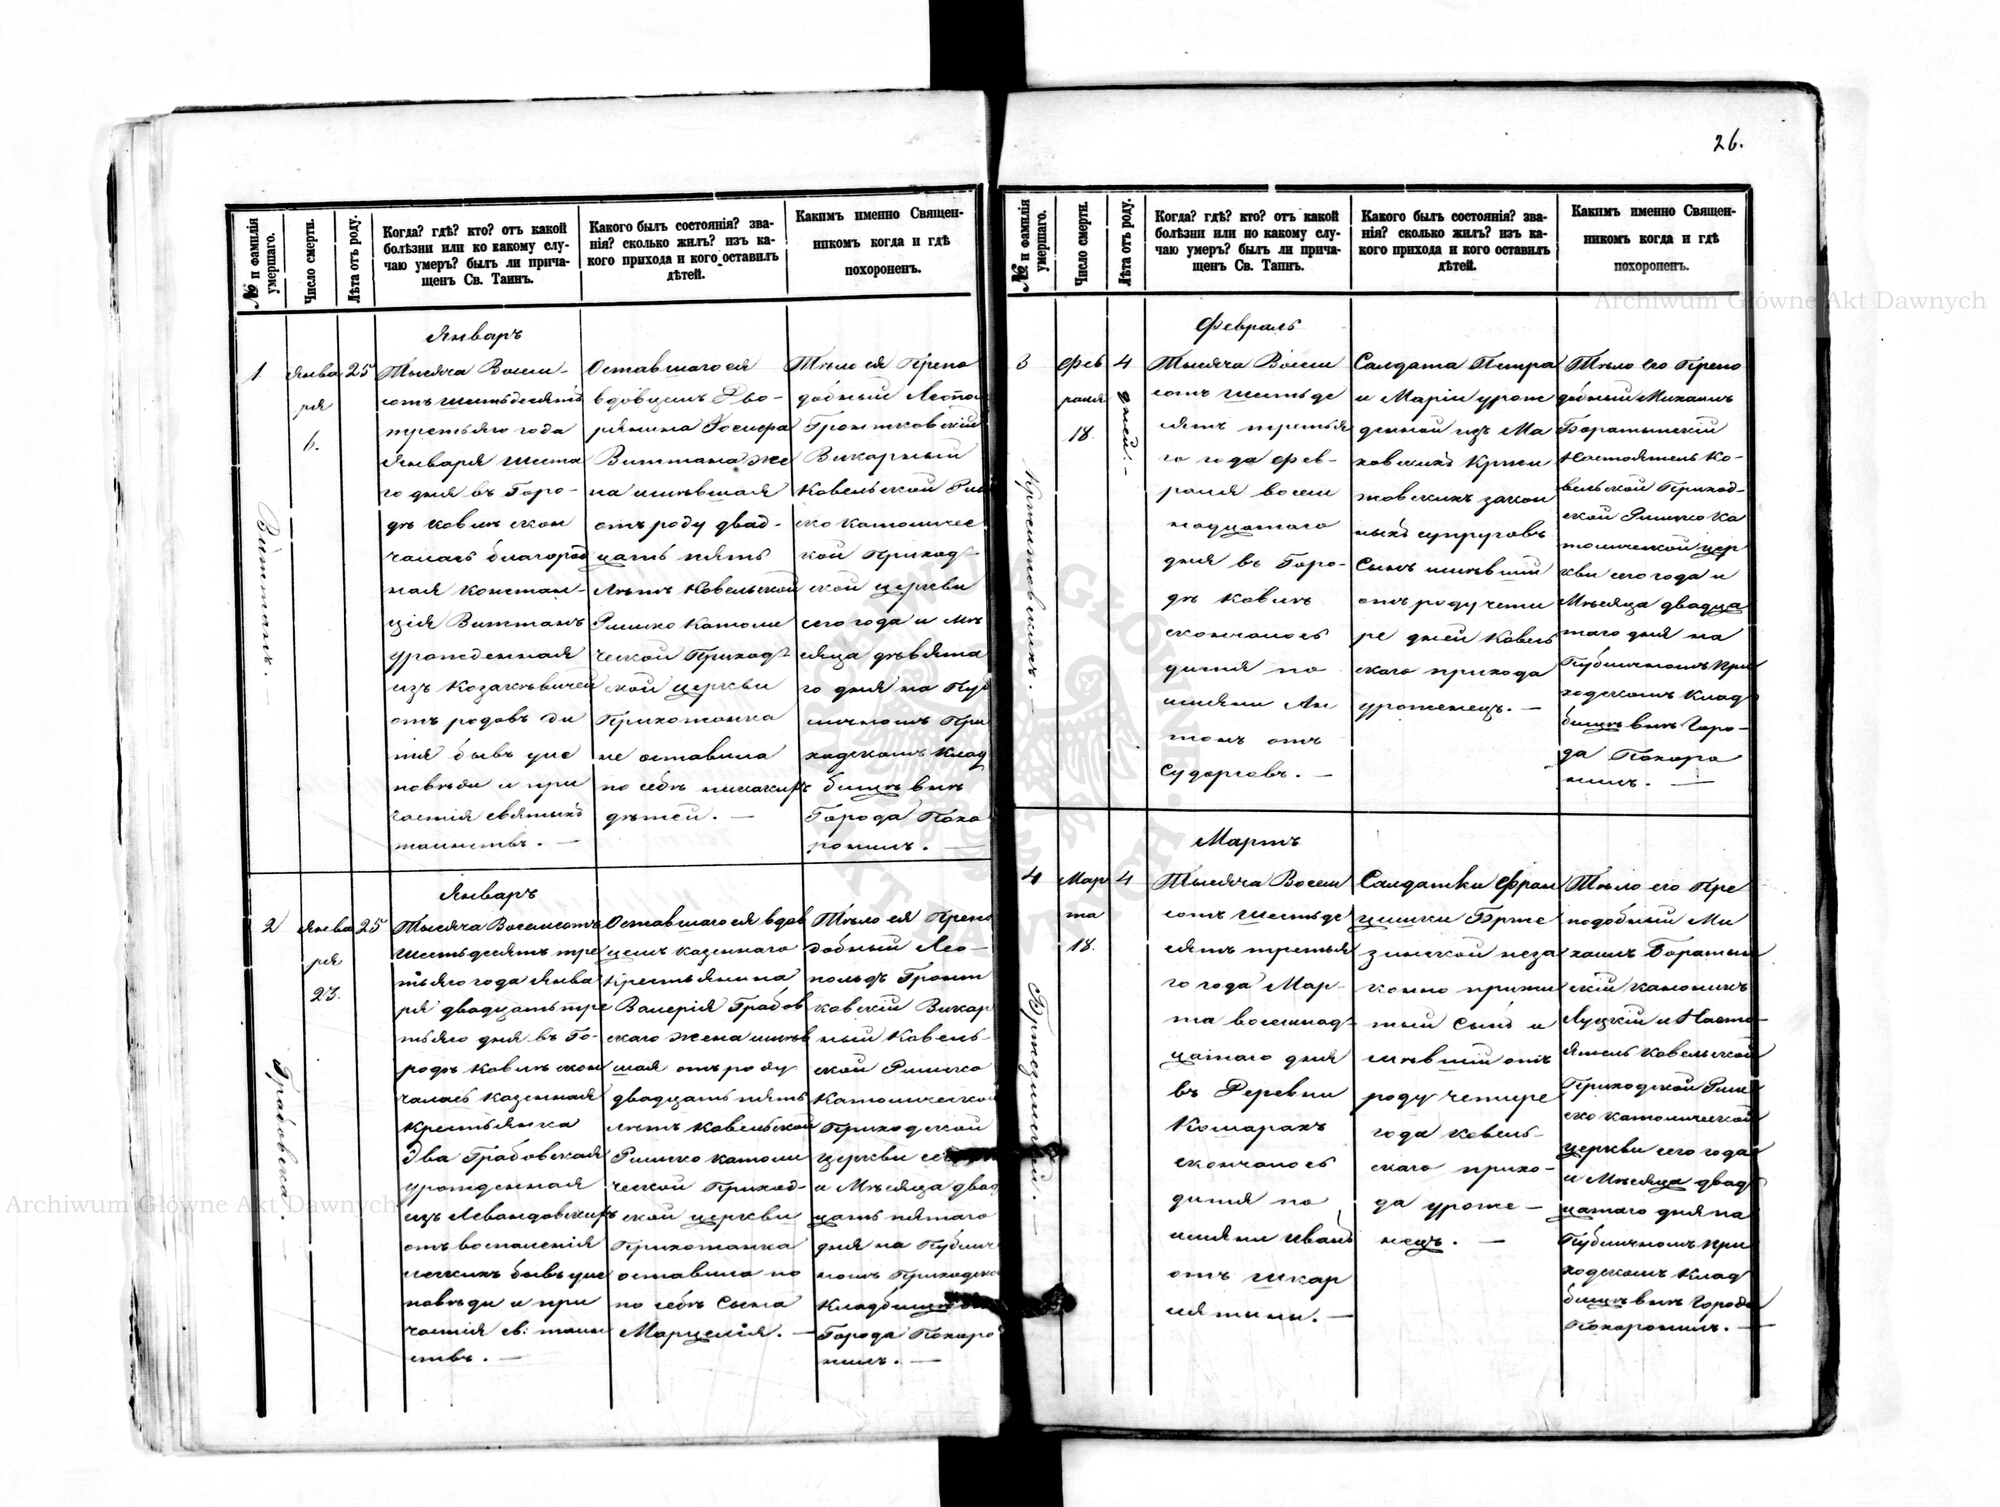 26.
№ и фамилія умершаго.
Число смерти.
Лѣта отъ роду.
Когда? гдѣ? кто? отъ какой
болѣзни или по какому слу-
чаю умеръ? былъ ли прича-
щенъ Св. Таинъ.
Какого былъ состоянія? зва-
нія? сколько жилъ? изъ ка-
кого прихода и кого оставилъ
дѣтей.
Какимъ именно Священ-
никомъ когда и гдѣ
похороненъ.
1.
Виттманъ. —
Янва
ря
6.
25
Январь
Тысяча Восем-
сотъ шестьдесятъ
третьяго года
Января шеста
го дня въ Горо-
дѣ Ковлѣ скон
чалась благород
ная Констан-
ція Виттманъ
урожденная
изъ Козакѣвичей
отъ родовъ ди
тя бывъ уис
повѣди и при
частія святыхъ
таинствъ. —
Оставшагося
вдовцемъ Дво-
рянина Іосифа
Виттмана же
на имѣвшая
отъ роду двад-
цать пять
лѣтъ Ковельской
Римско Католи
ческой Приход
ской церкви
Прихожанка
не оставила
по себѣ никакихъ
дѣтей. —
Тѣло ея Препо
добный Леопо
Гронтковскій
Викарный
Ковельской Рим
ско католичес
кой Приход
ской церкви
сего года и мѣ
сяца дѣвята
го дня на Пуб
личномъ При
ходскомъ Клад
бищѣ внѣ
Города Похо
ронилъ. —
2
Грабовска. —
Янва
ря
23.
25
Январь
Тысяча Восемсотъ
шестьдесятъ тре
тьяго года Янва
ря двадцать тре
тьяго дня въ Го-
родѣ Ковлѣ скон
чалась казенная
крестьянка
Эва Грабовская
урожденная
изъ Левандовскихъ
отъ воспаленія
легкихъ бывъ уис
повѣди и при
частія св: таин
ствъ. —
Оставшагося вдов
цемъ казеннаго
Крестьянина
Валерія Грабов
скаго жена имѣв
шая отъ роду
двадцать пять
лѣтъ Ковельской
Римско католи
ческой Приход-
ской церкви
Прихожанка
оставила по
по себѣ сына
Марцелія. —
Тѣло ея Препо
добный Лео-
польдъ Гронт
ковскій Викар
ный Ковель-
ской Римско
католической
Приходской
церкви се
и Мѣсяца двад
цать пятаго
дня на Публич
номъ Приходско
Кладбищѣ в
Города Похоро
нилъ. —
№ и фамилія умершаго.
Число смерти.
Лѣта отъ роду.
Когда? гдѣ? кто? отъ какой
болѣзни или по какому слу-
чаю умеръ? былъ ли прича-
щенъ Св. Таинъ.
Какого былъ состоянія? зва-
нія? сколько жилъ? изъ ка-
кого прихода и кого оставилъ
дѣтей.
Какимъ именно Священ-
никомъ когда и гдѣ
похороненъ.
3
Фев
раля
18.
4
дней. —
Февраль
Тысяча Восем
сотъ шестьде
сятъ третья
го года Фев-
раля восем
надцатаго
дня въ Горо-
дѣ Ковлѣ
скончалось
дитя по
имяни Ан
тонъ отъ
Судорговъ. —
Салдата Петра
и Маріи урож
денной изъ Ма
ковскихъ Кржи
товскихъ закон
ныхъ супруговъ
Сынъ имѣвшій
отъ роду четы
ре дней Ковель
скаго прихода
уроженецъ. —
Тѣло его Препо
добный Михаилъ
Боратынскій
Настоятель Ко-
вельской Приход-
ской Римско Ка
толической цер
кви сего года и
Мѣсяца двадца
таго дня на
Публичномъ При
ходскомъ Клад
бищѣ внѣ Горо-
да Похоро
нилъ. —
4
Мар
та
18.
4
Мартъ
Тысяча Восем
сотъ шестьде
сятъ третья
го года Мар-
та восемнад
цатаго дня
въ Деревни
Комарахъ
скончалось
дитя по
имяни Иванъ
отъ шкар
лятины. —
Салдатки Фран
цишки Брже
зинской неза
конно прижи
тый сынъ и
мѣвшій отъ
роду четыре
года Ковель-
скаго прихо-
да уроже-
нецъ. —
Тѣло его Пре
подобный Ми
хаилъ Боратын
скій каноникъ
Луцкій и Насто-
ятель Ковельской
Приходской Рим
ско католической
церкви сего года
и Мѣсяца двад
цатаго дня на
Публичномъ При
ходскомъ Клад
бищѣ внѣ Города
Похоронилъ. —
Archiwum Główne Akt Dawnych
Archiwum Główne Akt Dawnych